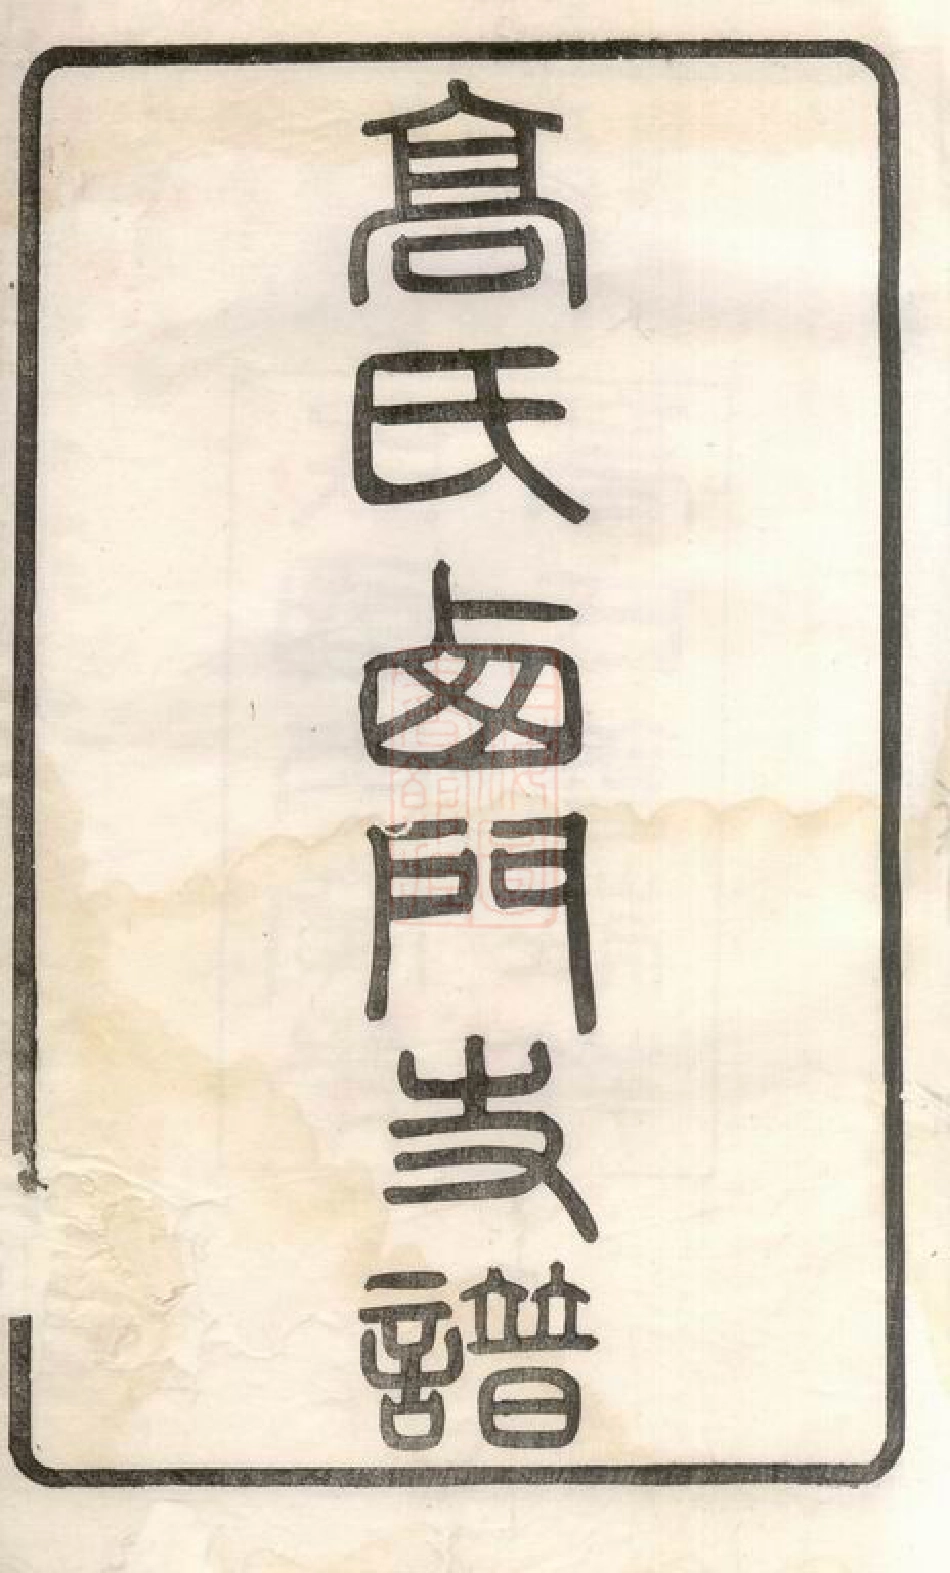 高氏西門支譜